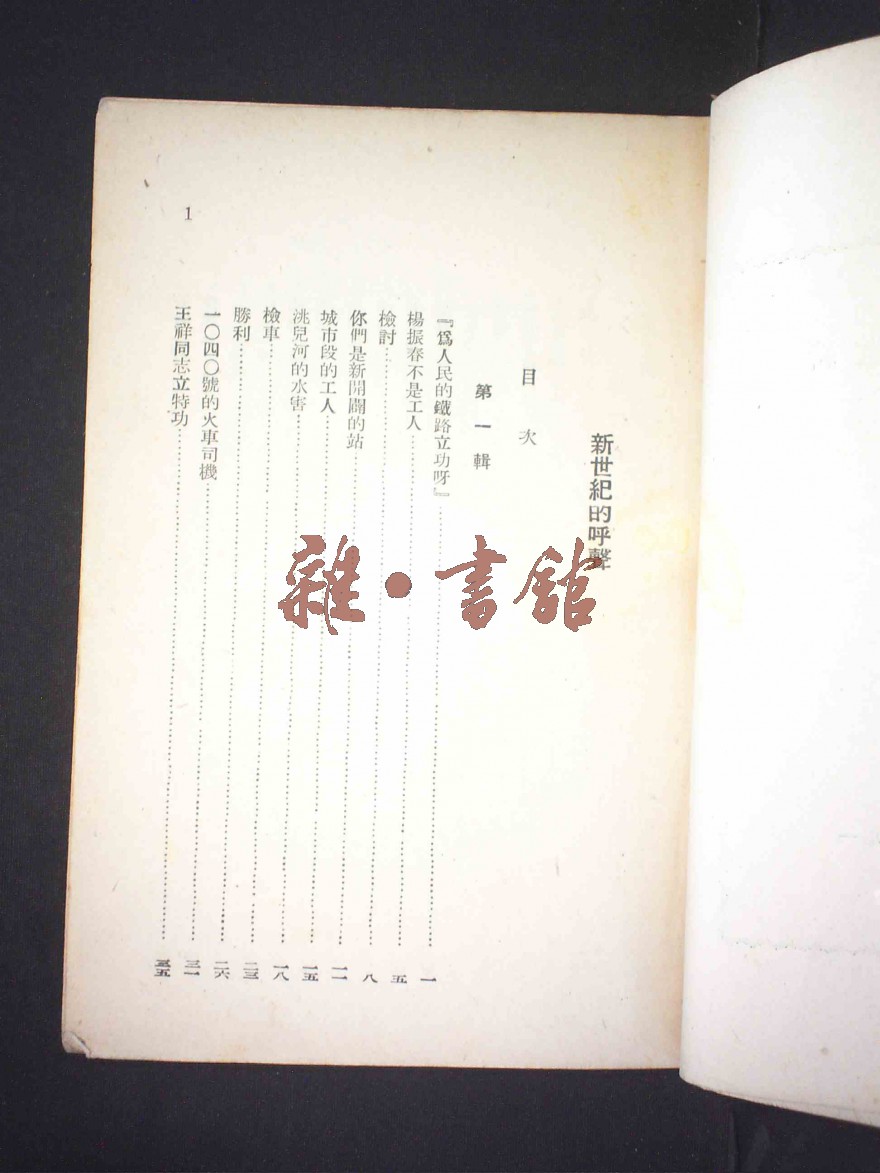 新世紀的呼聲
目次
第一輯
『爲人民的鐵路立功呀』……一
楊振春不是工人……五
檢討……八
你們是新開闢的站……一一
城市段的工人……一五
洮兒河的水害……一八
檢車……二三
勝利……二六
一〇四〇號的火車司機……三一
王祥同志立特功……三五
1
雜·書館